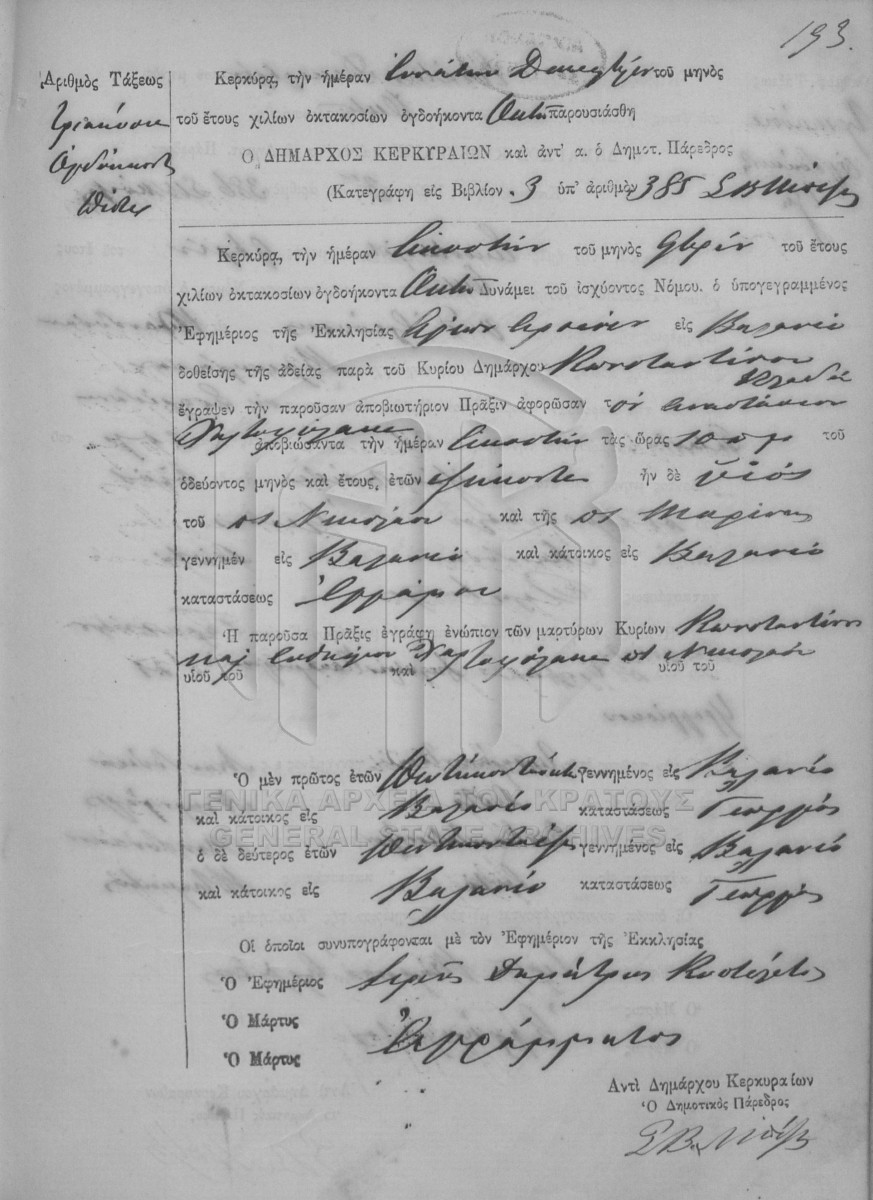 193.
Ἀριθμὸς Τάξεως
Τριακόσια
Ὀγδοήκοντα
Πέντε
Κερκύρα, τὴν ἡμέραν Ἐννάτην Δεκεμβρίου τοῦ μηνὸς
τοῦ ἔτους χιλίων ὀκτακοσίων ὀγδοήκοντα Ὀκτὼ παρουσιάσθη
Ὁ ΔΗΜΑΡΧΟΣ ΚΕΡΚΥΡΑΙΩΝ καὶ ἀντ' α. ὁ Δημοτ. Πάρεδρος
(Κατεγράφη εἰς Βιβλίον . 3 ὑπ' ἀριθμὸν 385
Κερκύρα, τὴν ἡμέραν Εἰκοστὴν τοῦ μηνὸς 9βρίου τοῦ ἔτους
χιλίων ὀκτακοσίων ὀγδοήκοντα Ὀκτὼ Δυνάμει τοῦ ἰσχύοντος Νόμου. ὁ ὑπογεγραμμένος
Ἐφημέριος τῆς Ἐκκλησίας Ἁγίου Ἀρσενίου εἰς Βαλανιό
δοθείσης τῆς ἀδείας παρὰ τοῦ Κυρίου Δημάρχου Κωνσταντίνου
ἔγραψεν τὴν παροῦσαν ἀποβιωτήριον Πρᾶξιν ἀφορῶσαν τὸν Ἀναστάσιον
Χαρτοφύλακα ἀποβιώσαντα τὴν ἡμέραν Εἰκοστὴν τὰς ὥρας 10 π μ τοῦ
ὁδεύοντος μηνὸς καὶ ἔτους, ἐτῶν ἑξήκοντα ἦν δὲ υἱὸς
τοῦ πτ Νικολάου καὶ τῆς πτ Μαρίνας
γεννημέν εἰς Βαλανιό καὶ κάτοικος εἰς Βαλανιό
καταστάσεως Ἐργάμου
Ἡ παροῦσα Πρᾶξις ἐγράφη ἐνώπιον τῶν μαρτύρων Κυρίων Κωνσταντίνος
καὶ Εὐθύμιου Χαρτοφύλακα πτ Νικολάου
υἱοῦ τοῦ καὶ υἱοῦ τοῦ
Ὁ μὲν πρῶτος ἐτῶν γεννημένος εἰς Βαλανιό
καὶ κάτοικος εἰς Βαλανιό καταστάσεως Γεωργός
ὁ δὲ δεύτερος ἐτῶν γεννημένος εἰς Βαλανιό
καὶ κάτοικος εἰς Βαλανιό καταστάσεως Γεωργός
Οἱ ὁποῖοι συνυπογράφονται μὲ τὸν Ἐφημέριον τῆς Ἐκκλησίας
Ὁ Ἐφημέριος Ἱερεὺς Δημήτριος
Ὁ Μάρτυς Ἀγράμματος
Ὁ Μάρτυς
Ἀντὶ Δημάρχου Κερκυραίων
Ὁ Δημοτικὸς Πάρεδρος
ΓΕΝΙΚΑ ΑΡΧΕΙΑ ΤΟΥ ΚΡΑΤΟΥΣ
GENERAL STATE ARCHIVES